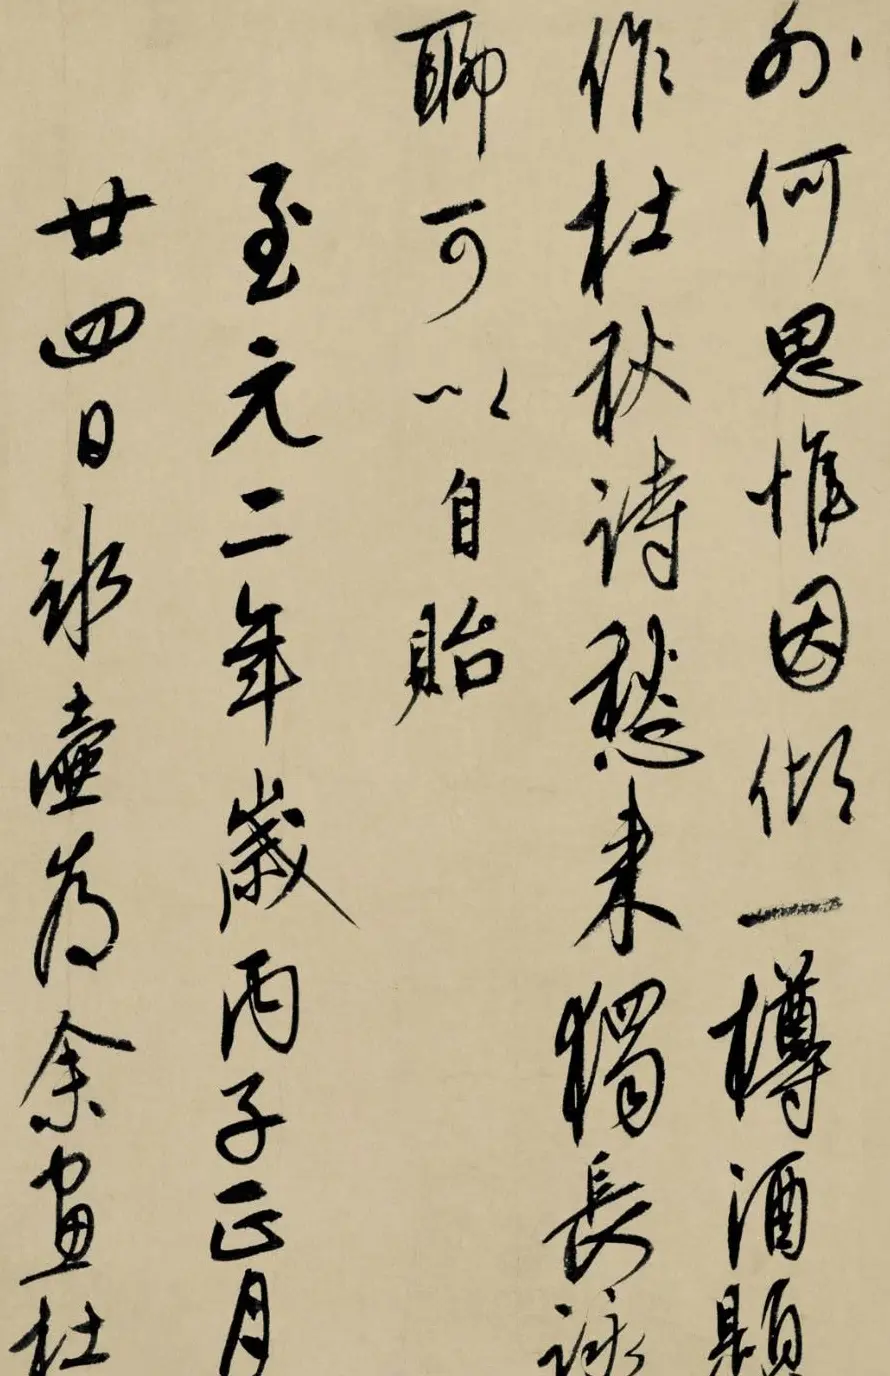 外何思惟因傾一樽酒題
作杜秋詩愁来獨長詠
聊可以自貽
至元二年歲丙子正月
廿四日冰壺為余畫杜